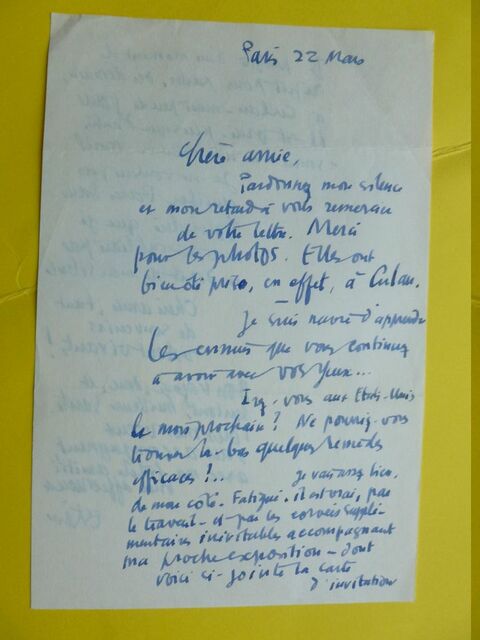 Paris 22 Mars
Chère amie,
Pardonnez mon silence
et mon retard à vous remercier
de votre lettre. Merci
pour les photos. Elles ont
bien été prises, en effet, à Culan.
Je suis navré d'apprendre
les ennuis que vous continuez
à avoir avec vos yeux...
Irez-vous aux Etats-Unis
le mois prochain? Ne pourriez-vous
trouver là-bas quelques remèdes
efficaces!.. Je vais assez bien,
de mon côté. Fatigué, il est vrai, par
le travail - et par les corvées supplé-
mentaires inévitables accompagnant
ma proche exposition - dont
voici ci-jointe la carte
d'invitation